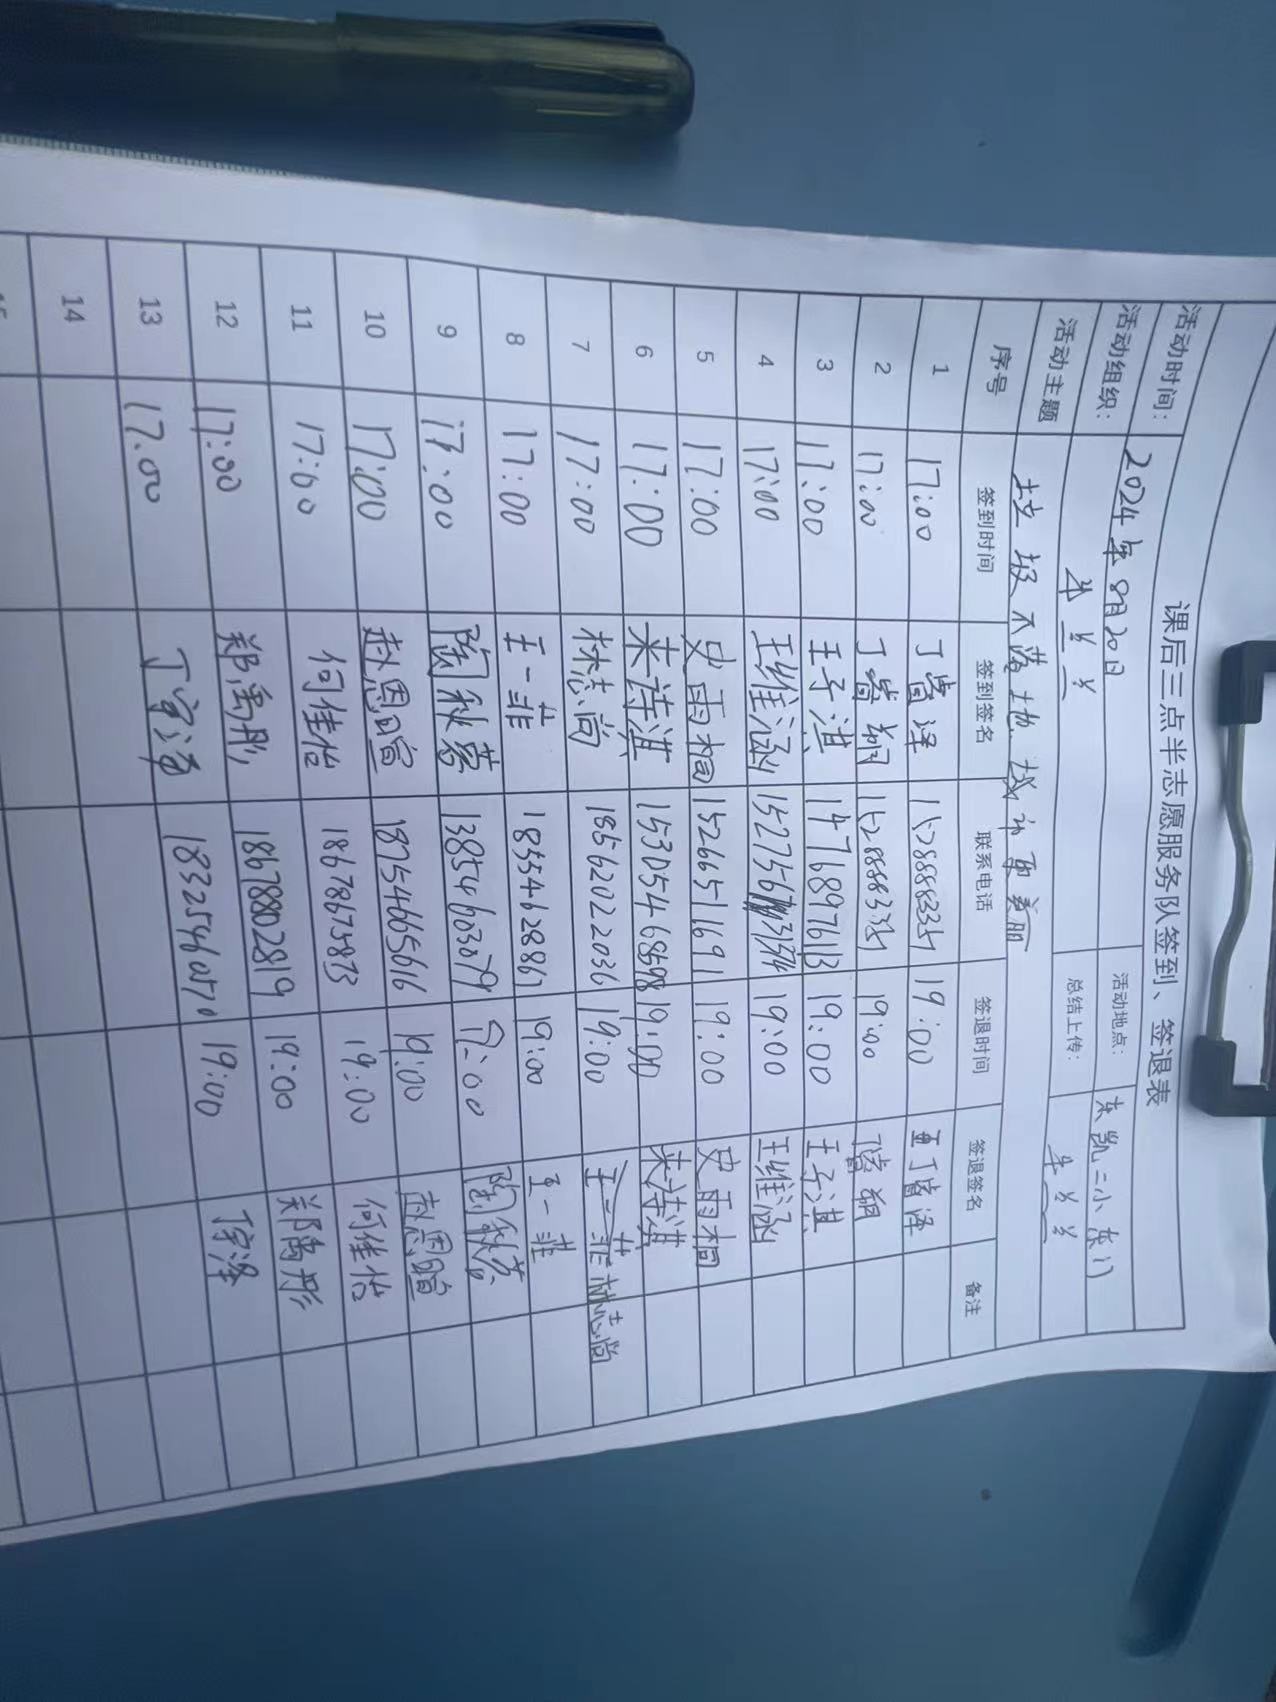 课后三点半志愿服务队签到、签退表
活动时间: 2024年8月20日 活动地点: 东凯二小东门
活动组织: 总结上传:
活动主题 垃圾不落地 城市更美丽
序号 签到时间 签到签名 联系电话 签退时间 签退签名 备注
1 17:00 丁睿泽 15288883351 19:00 丁睿泽
2 17:00 丁睿翔 15288883351 19:00 睿翔
3 17:00 王子淇 14768976113 19:00 王子淇
4 17:00 王维涵 19:00 王维涵
5 17:00 史雨桐 15266516691 19:00 史雨桐
6 17:00 宋诗淇 15305468598 19:00 宋诗淇
7 17:00 林志尚 18562022036 19:00 林志尚
8 17:00 王一菲 18354628861 19:00 王一菲
9 17:00 陶秋蓉 13854603079 陶秋蓉
10 17:00 赵恩暄 18754665616 19:00 赵恩暄
11 17:00 何佳怡 18678673833 19:00 何佳怡
12 17:00 郑禹彤 18678802819 19:00 郑禹彤
13 17:00 19:00
14